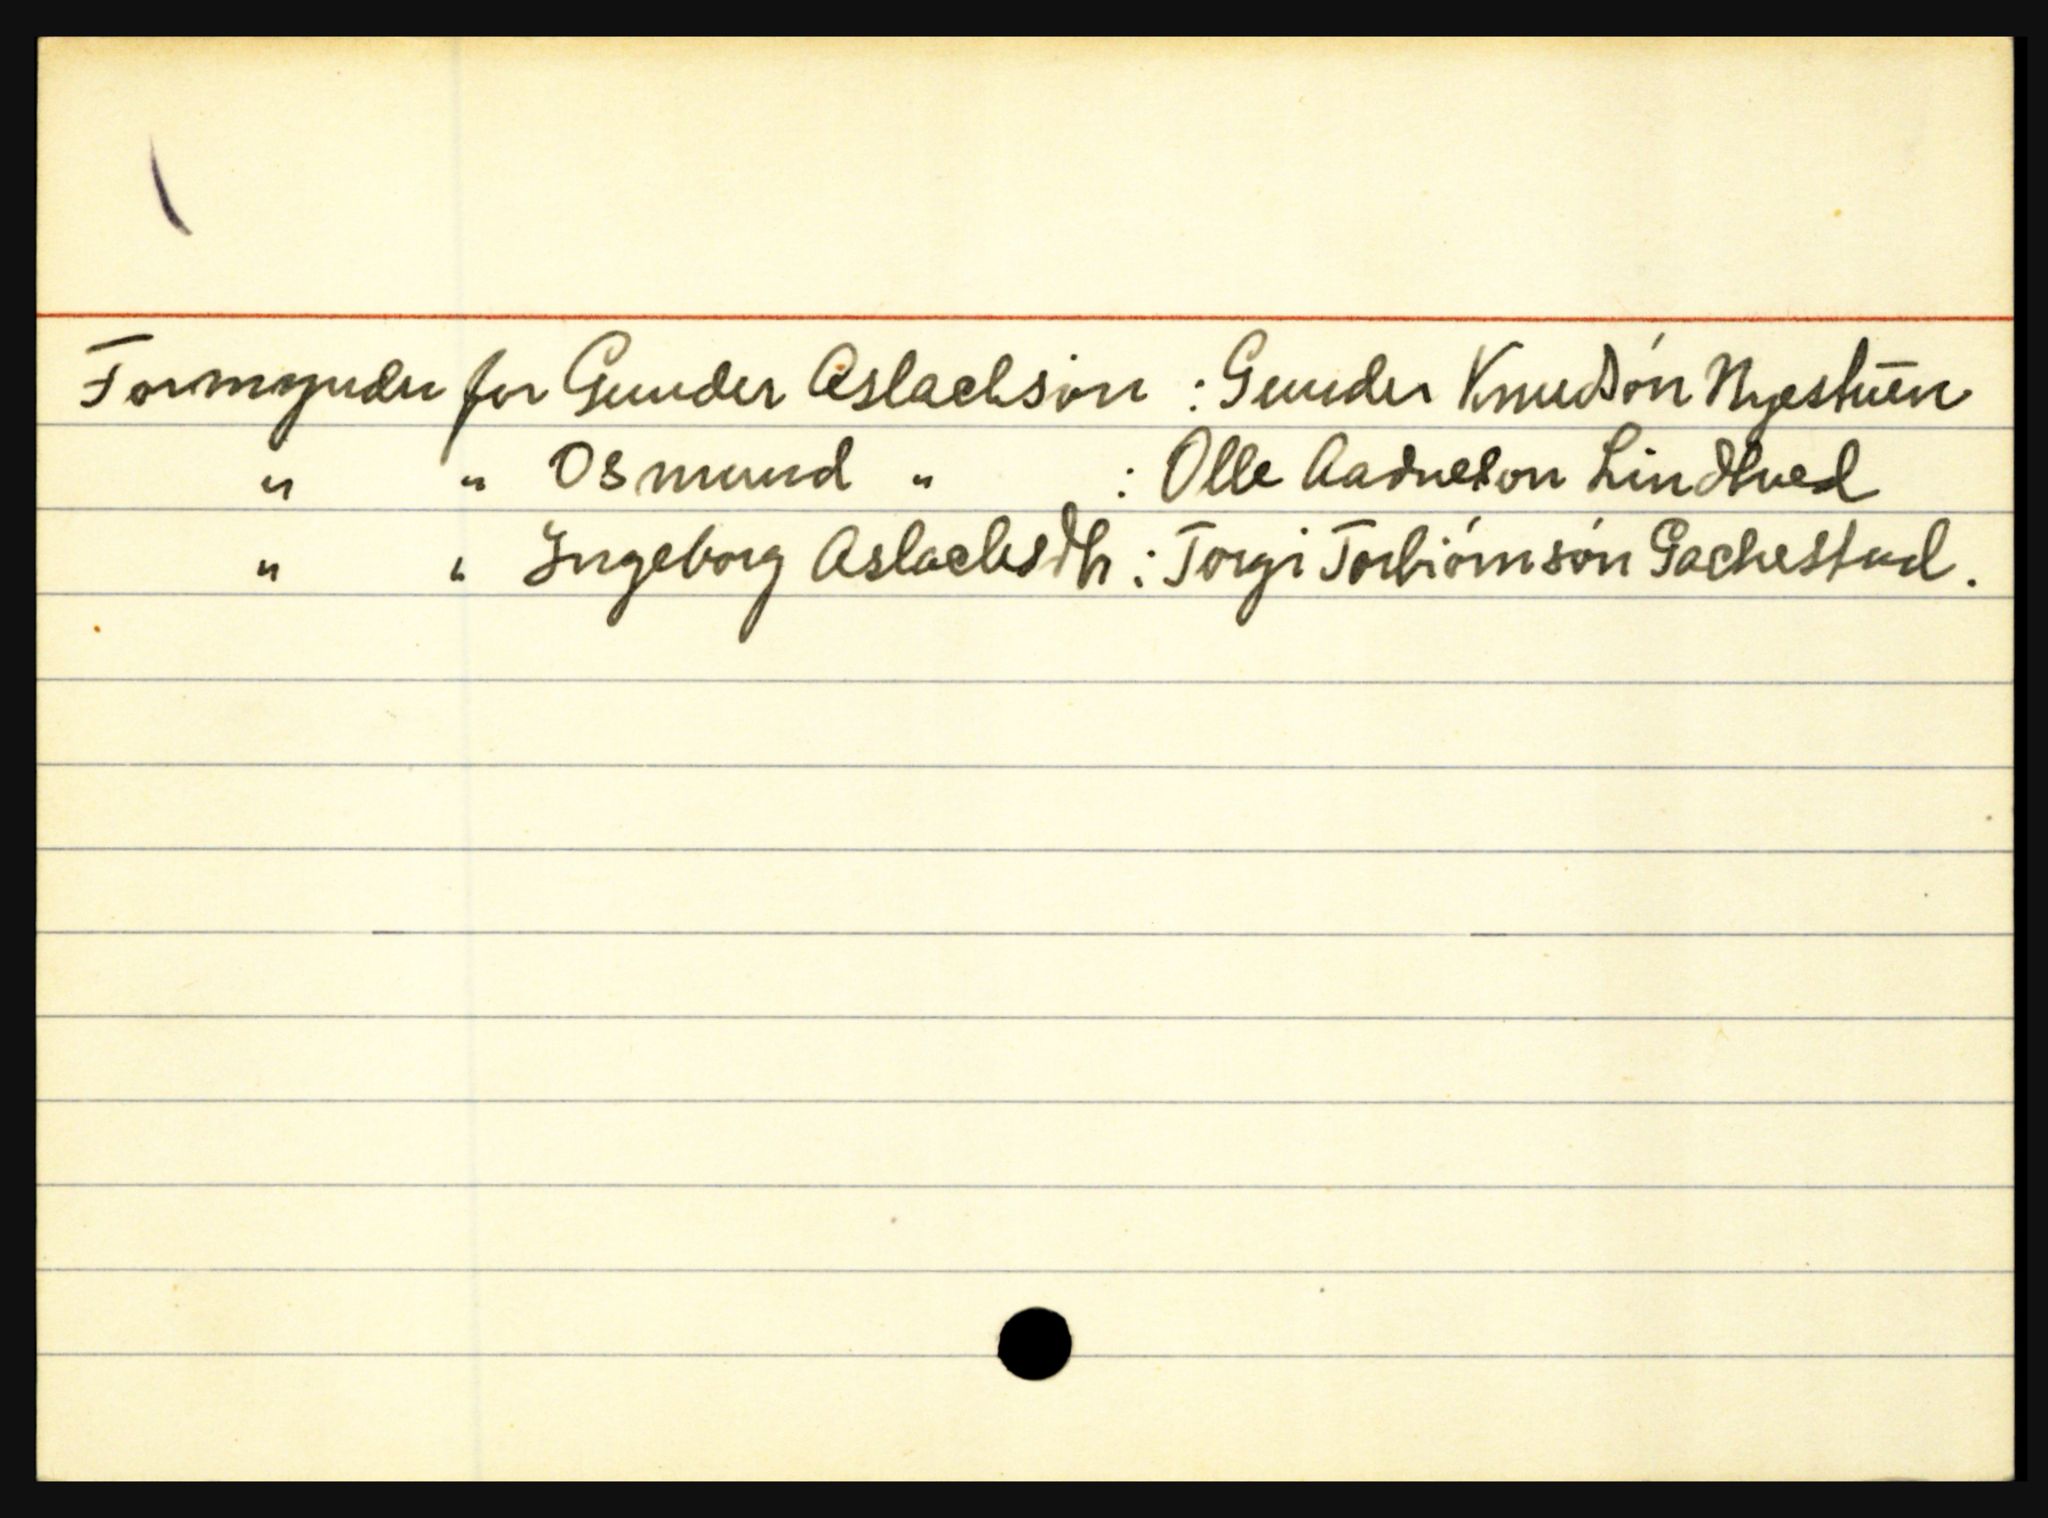 Formynder for Gunder Aslachsön : Gunder Knudsón Nyestúen
" " Osmund " : Olle Aadneson Lindtved
" " Ingeborg Aslachsdtr : Torgi Torbiórnsón Gachestad.